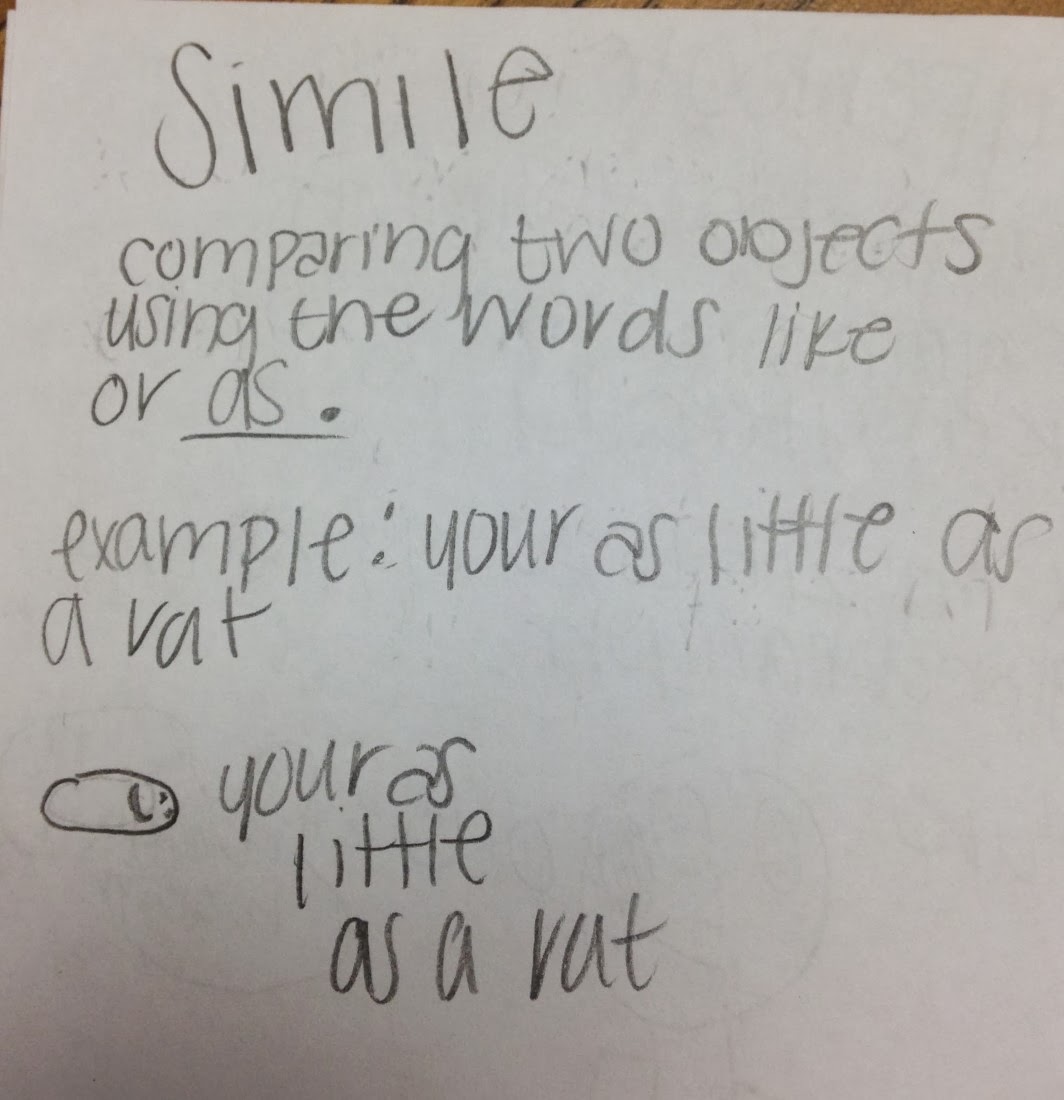 Simile
comparing two objects
using the words like
or as.
example: your as little as
a rat
your as
little
as a rat